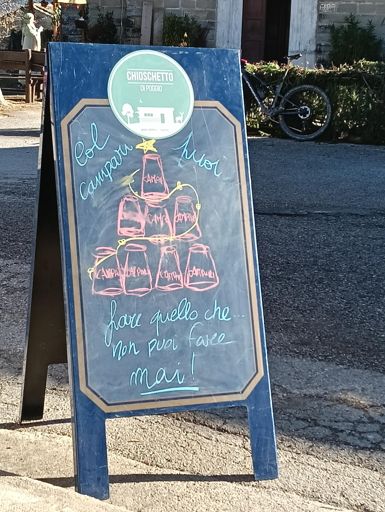 CHIOSCHETTO
DI POGGIO
Col Campari puoi
CAMPARI
CAMPARI CAMPARI
CAMPARI CAMPARI CAMPARI CAMPARI
fare quello che...
non puoi fare
mai!